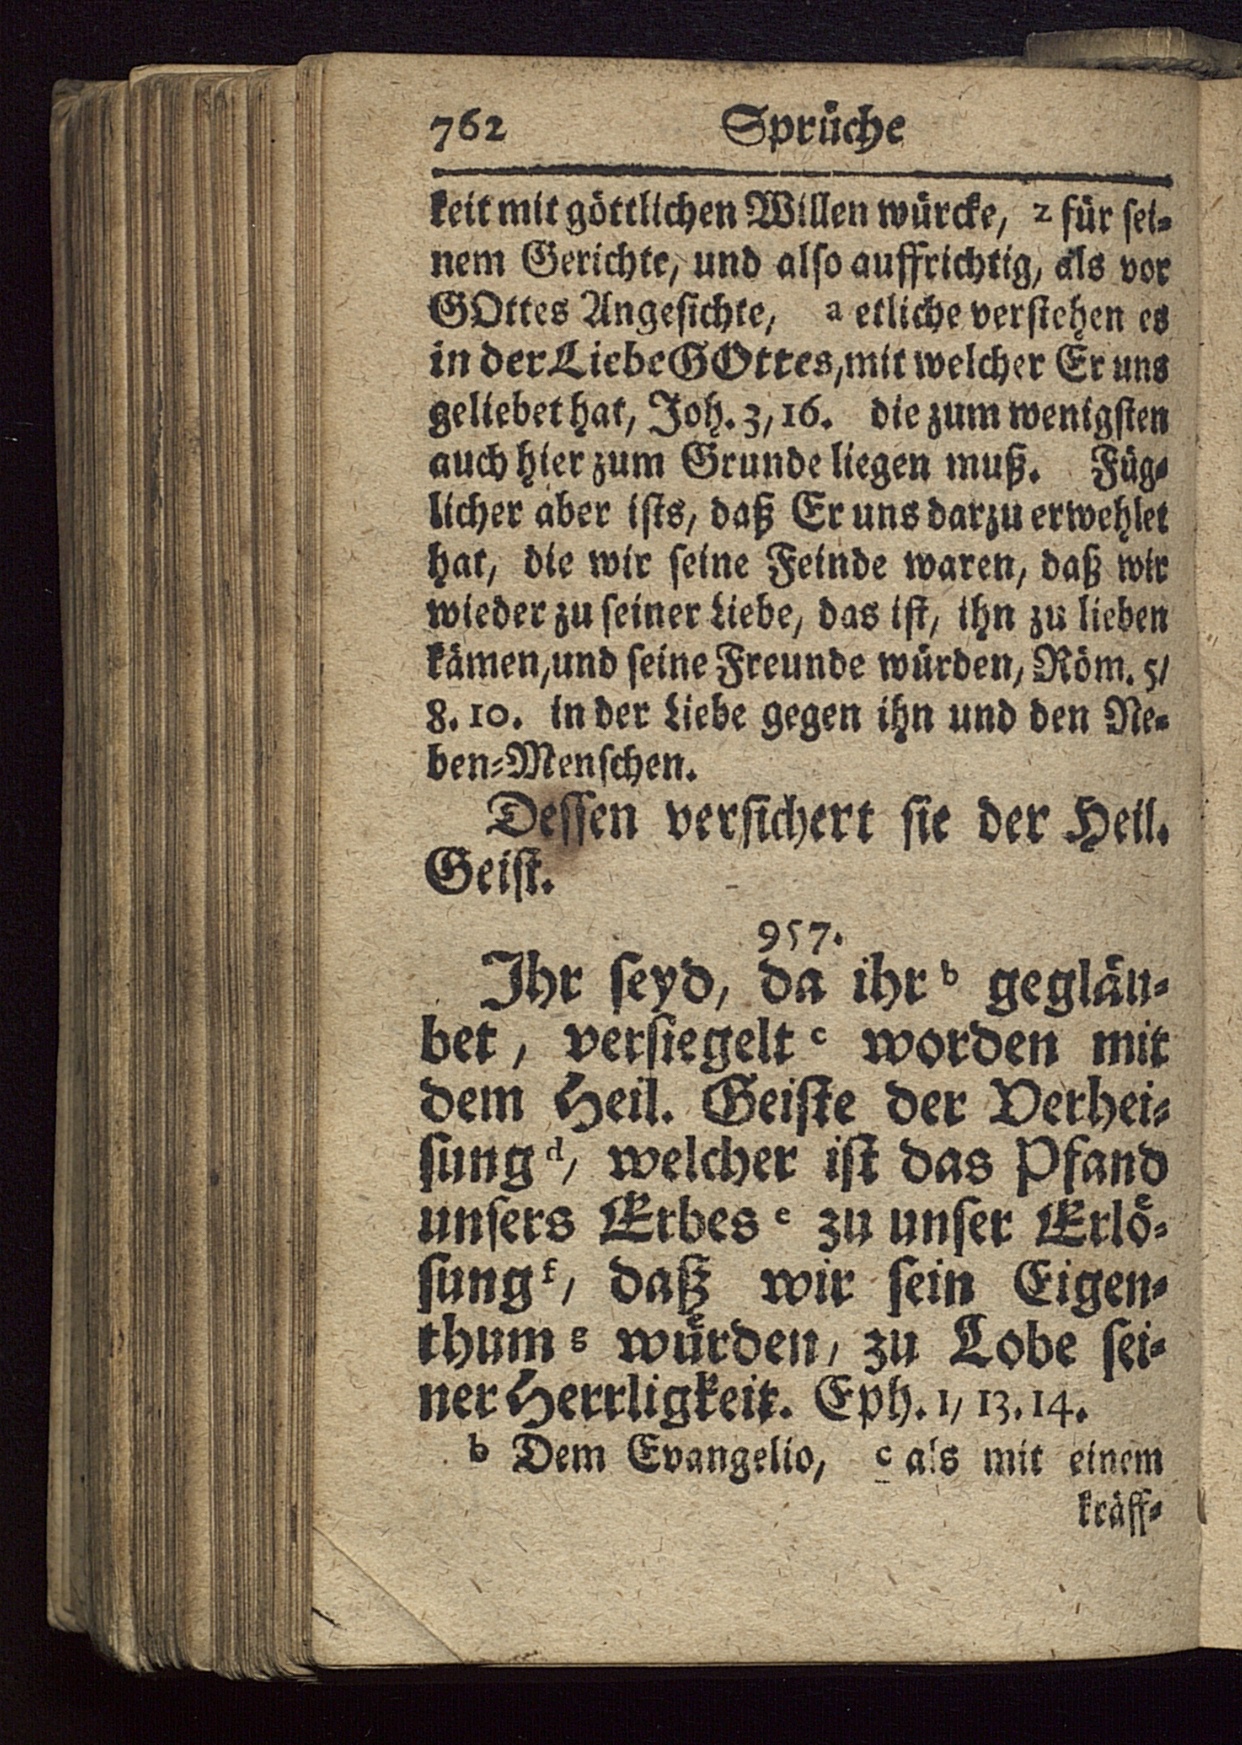 762 Sprüche
keit mit göttlichen Willen würcke, z für sei-
nem Gerichte, und also auffrichtig, als vor
GOttes Angesichte, a etliche verstehen es
in der Liebe GOttes, mit welcher Er uns
geliebet hat, Joh. 3, 16. die zum wenigsten
auch hier zum Grunde liegen muß. Füg-
licher aber ists, daß Er uns darzu erwehlet
hat, die wir seine Feinde waren, daß wir
wieder zu seiner Liebe, das ist, ihn zu lieben
kämen, und seine Freunde würden, Röm. 5/
8. 10. in der Liebe gegen ihn und den Ne-
ben-Menschen.
Dessen versichert sie der Heil.
Geist.
957.
Ihr seyd, da ihr b gegläu-
bet, versiegelt c worden mit
dem Heil. Geiste der Verhei-
sung d, welcher ist das Pfand
unsers Erbes e zu unser Erlö-
sung f, daß wir sein Eigen-
thum g würden, zu Lobe sei-
ner Herrligkeit. Eph. 1, 13. 14.
b Dem Evangelio, c als mit einem
kräff-